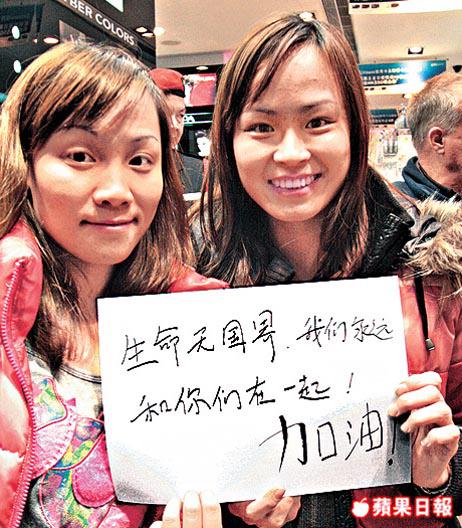 BER COLORS
生命无国界.我们永远
和你们在一起!
加口油!
蘋果日報